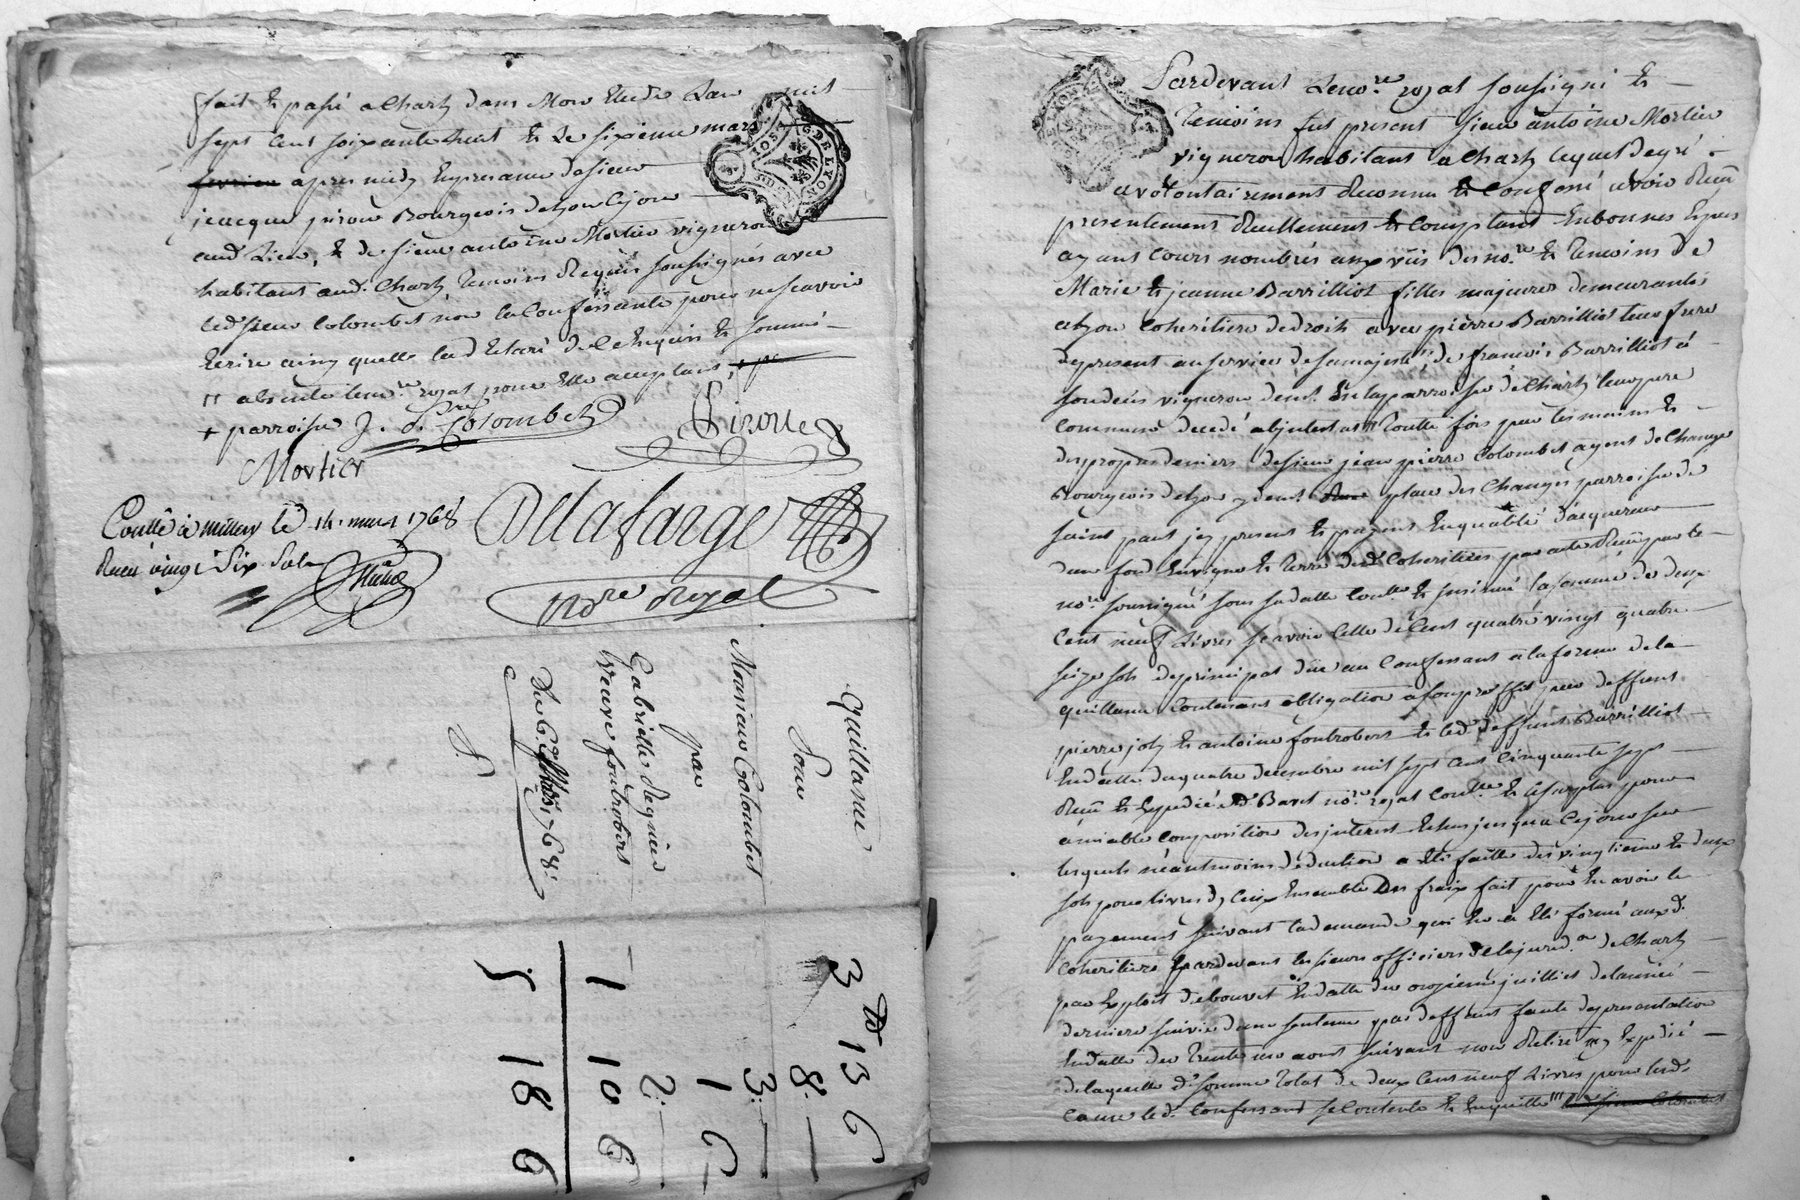 fait & passé a Charly dans Mon Etude L'an mil
sept cent soixante huit & Le sixieme mars
fevrier apres midy En presence de sieur
jeacque pirou Bourgeois de Lyon
aud. Lieu, & de sieur antoine Mortier vigneron
habitant aud. Charly temoins Requis soussignés avec
led. sieur Colombet non la Confessante pour ne scavoir
Ecrire ainsy quelle la declaré de ce Enquise & sommé
absente le no.re royal pour Elle acceptant,
+ parroisse J. P.re Colombet
Piroue
Mortier
Dellafarge
no.re royal
Conllé à millery le 14. mars 1768
Receu vingt Six Sols
Quittance
Pour
Monsieur Colombet
par
Gabrielle Regnier
Veuve foutrobert
Du 6.e Mars 1768.
3 tt 13 6
8. —
3: —
1 6
2: —
1 10 6
5 18 6
G. DE LYON
Pardevant Le no.re royal soussigné &
Temoins fut present sieur antoine Mortier
vigneron habitant a Charly lequel de gré
a volontairement Reconnu & Confessé avoir Receu
presentement Reellement & Comptant En bonnes Especes
ayant Cours nombrés aux vûs des no.re & Temoins de
Marie & jeanne Barrilliot filles majeures demeurantes
a Lyon Coheritiere de droits avec pierre Barrilliot leur frere
de present au service de sa majesté de francois Barrilliot
vigneron demt. En la parroisse de Charly leur pere
Commun decedé abintestat Toutte fois par les mains &
des propres deniers de sieur jean pierre Colombet agent de Change
Bourgeois de Lyon y demt. place des Changes parroisse de
saint paul icy present & payant En qualité d'acquereur
d'un fond En vigne & Terre desd. Coheritiers par acte Receu par le
no.re soussigné sous sa datte Conllé & insinué la somme de deux
Cent neuf Livres scavoir Celle de Cent quatre vingt quatre
seize sols de principal dûe au Confessant a la forme de la
quittance Contenant obligation a son proffit par deffunt
pierre joly & antoine foutrobert & led. deffunt Barrilliot
En datte du quatre decembre mil sept Cent Cinquante sept
Receu & Expedié Baret no.re royal Conllé & le surplus pour
amiable Composition des interest Echus jusqua Ce jour sur
lesquels néantmoins déduction a Eté faitte des vingtieme & deux
sols pour livres d'iceux Ensemble Des fraix fait pour En avoir le
payement suivant la demande qui En a Eté formé auxd.
Coheritiers pardevant les sieurs officiers de la jurid.on de Charly
par Exploit de bouvet En datte du onzieme juilliet de l'année
derniere suivie d'une sentence par deffaut faute de presentation
En datte du Trente un aout suivant non Retiré ny Expedié
de laquelle d. somme Total de deux Cent neuf Livres pour lesd.
Cause led. Confessant se Contente & En quitte led. sieur Colombet